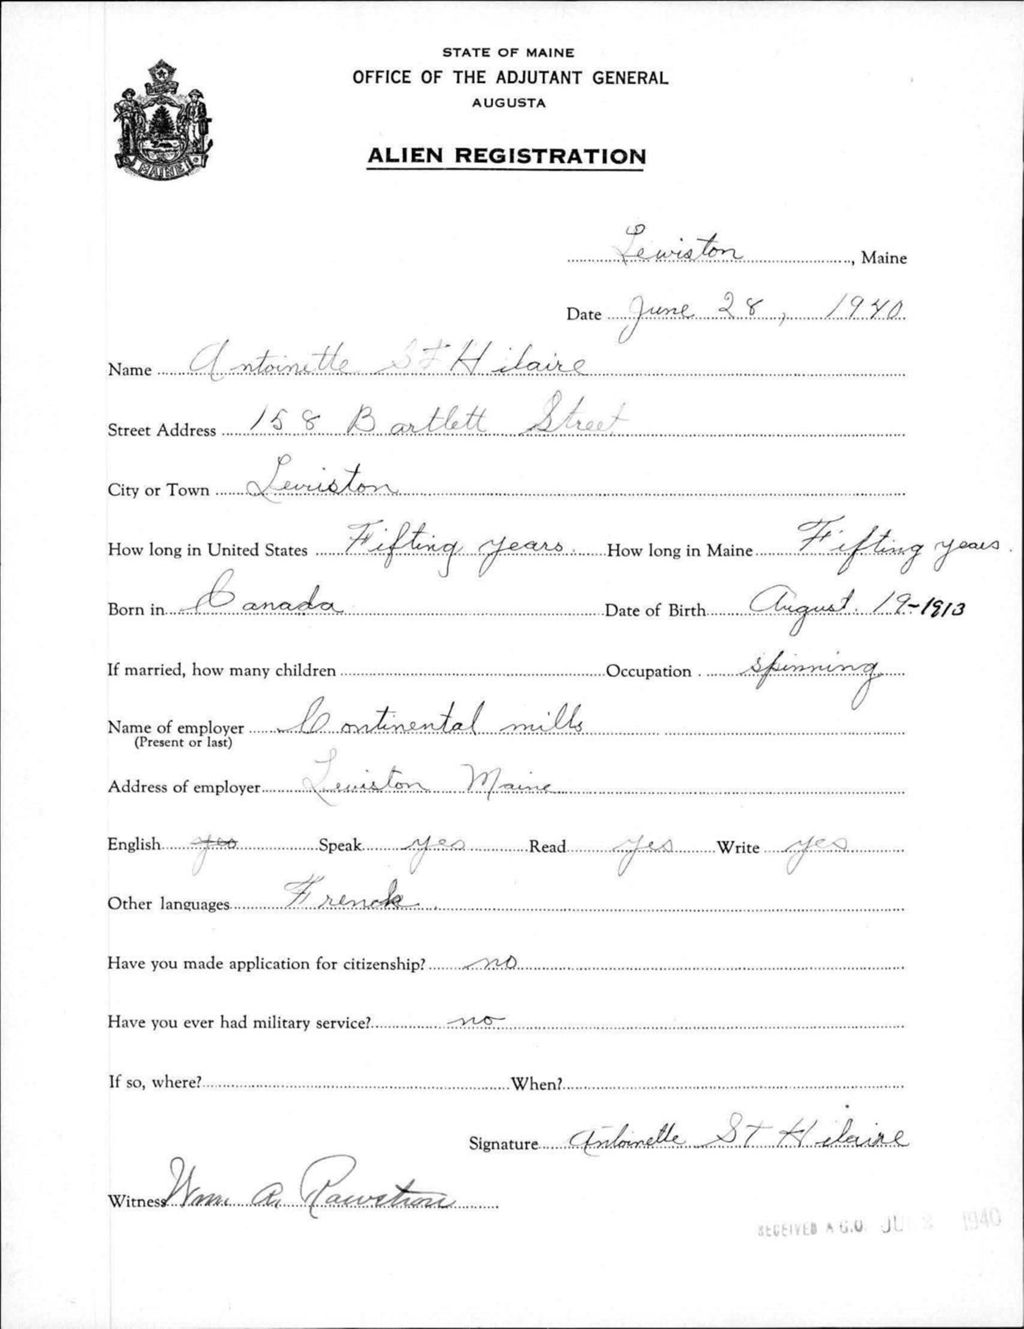 STATE OF MAINE
OFFICE OF THE ADJUTANT GENERAL
AUGUSTA
ALIEN REGISTRATION
MAINE
Lewiston, Maine
Date June 28, 1940
Name Antoinette St Hilaire
Street Address 158 Bartlett Street
City or Town Lewiston
How long in United States Fifting years. How long in Maine Fifting years.
Born in Canada Date of Birth August 19-1913
If married, how many children Occupation spinning
Name of employer Continental mills
(Present or last)
Address of employer Lewiston Maine
English yes Speak yes Read yes Write yes
Other languages French.
Have you made application for citizenship? no
Have you ever had military service? no
If so, where? When?
Signature Antoinette St Hilaire
Witness Wm. A. Rawstron
RECEIVED A.G.O. 1940